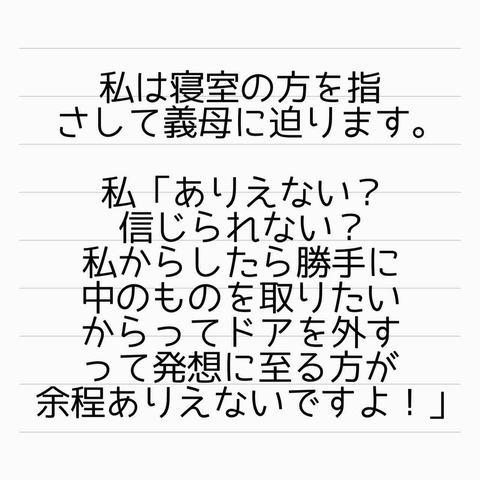 私は寝室の方を指
さして義母に迫ります。
私「ありえない？
信じられない？
私からしたら勝手に
中のものを取りたい
からってドアを外す
って発想に至る方が
余程ありえないですよ！」